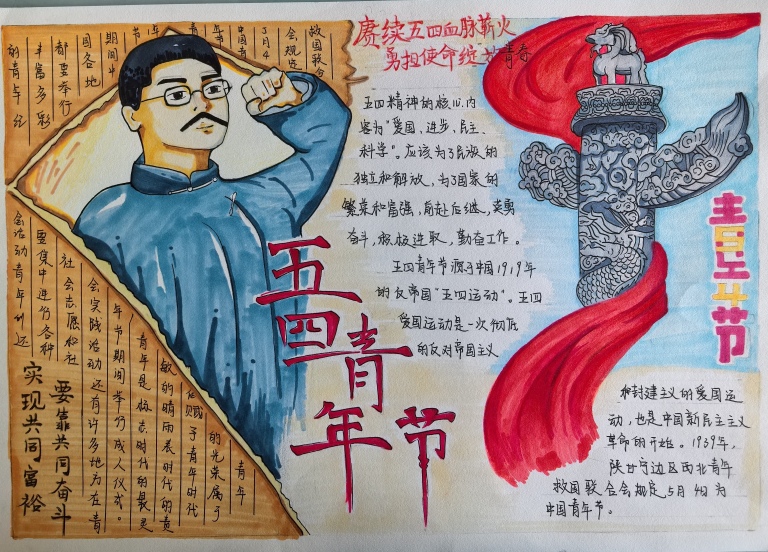 赓续五四血脉薪火
勇担使命绽放青春
五四精神的核心内
容为“爱国、进步、民主、
科学”。应该为了民族的
独立和解放，为了国家的
繁荣和富强，前赴后继，英勇
奋斗，积极进取，勤奋工作。
五四青年节源于中国1919年
的反帝国“五四运动”。五四
爱国运动是一次彻底
的反对帝国主义
和封建主义的爱国运
动，也是中国新民主主义
革命的开始。1939年，
陕甘宁边区西北青年
救国联合会规定，5月4日为
中国青年节。
五四青年节
青年
的光荣属于
赋予青年时代
敏的晴雨表时代的责
青年是标志时代的最灵
年节期间举行成人仪式。
会实践活动还有许多地方在青
社会志愿和社
要集中进行各种
会活动青年们还
救国联合
会规定
5月4
中国青
期间
国各地
都要举行
丰富多彩
的青年纪
要靠共同奋斗
实现共同富裕